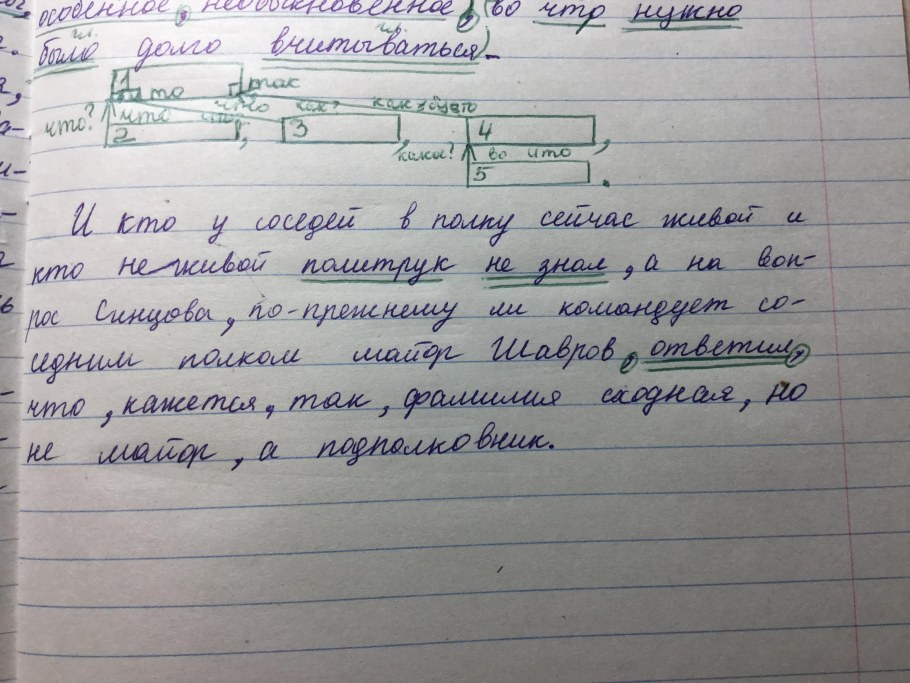 особенное, необыкновенное, во что нужно
гл. гл.
было долго вчитываться).
1
то так
что? что что как, как будто
2 , 3 , 4 ,
какое? во что
5 .
И кто у соседей в полку сейчас живой и
кто не живой политрук не знал, а на воп-
рос Синцова, по-прежнему ли командует со-
седним полком майор Шавров, ответил,
что, кажется, так, фамилия сходная, но
не майор, а подполковник.